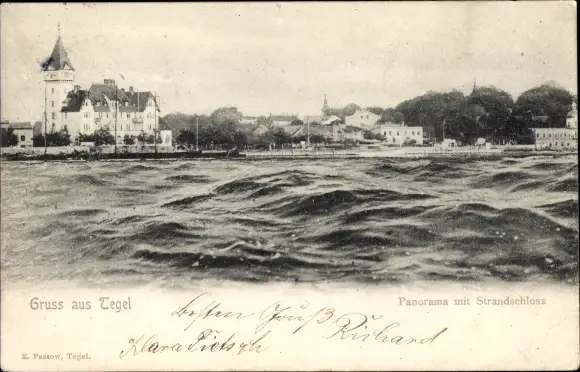 Gruss aus Tegel
Panorama mit Strandschloss
Besten Gruß Richard
Klara Pietsch
K. Passow, Tegel.